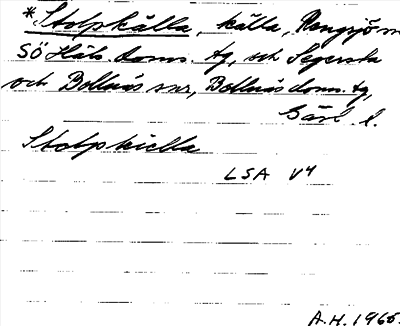 *Stolpkälla, källa, Rengsjö sn
SÖ Häls. doms. tg, och Segersta
och Bollnäs snr, Bollnäs doms. tg,
Gävl. l.
Stolpkiella
LSA V4
A.H. 1965.